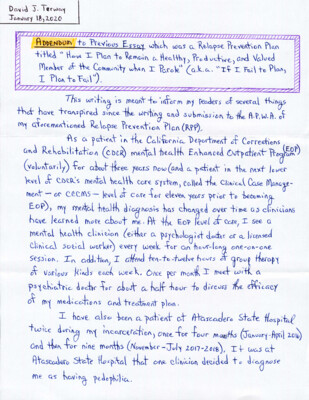 David J. Terway
January 18, 2020
ADDENDUM to Previous Essay which was a Relapse Prevention Plan
titled "How I Plan to Remain a Healthy, Productive, and Valued
Member of the Community when I Parole" (a.k.a. "If I Fail to Plan,
I Plan to Fail").
This writing is meant to inform my readers of several things
that have transpired since the writing and submission to the A.P.W.A. of
my aforementioned Relapse Prevention Plan (RPP).
As a patient in the California Department of Corrections
and Rehabilitation (CDCR) mental health Enhanced Outpatient Program (EOP)
(voluntarily) for about three years now (and a patient in the next lower
level of CDCR's mental health care system, called the Clinical Case Manage-
ment — or CCCMS — level of care for eleven years prior to becoming
EOP), my mental health diagnosis has changed over time as clinicians
have learned more about me. At the EOP level of care, I see a
mental health clinician (either a psychologist doctor or a licensed
clinical social worker) every week for an hour-long one-on-one
session. In addition, I attend ten-to-twelve hours of group therapy
of various kinds each week. Once per month I meet with a
psychiatric doctor for about a half hour to discuss the efficacy
of my medications and treatment plan.
I have also been a patient at Atascadero State Hospital
twice during my incarceration, once for four months (January-April 2016)
and then for nine months (November-July 2017-2018). It was at
Atascadero State Hospital that one clinician decided to diagnose
me as having pedophilia.